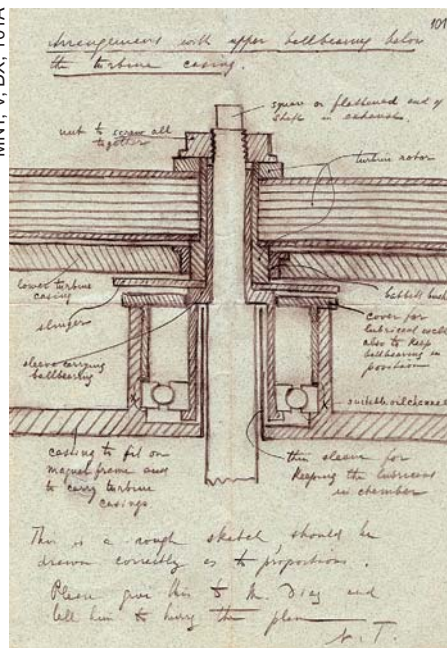 101
MNT, V, BX, 101A
Arrangement with upper ballbearing below
the turbine casing.
square or flattened end of
shaft in exhaust.
nut to screw all
together
turbine rotor
lower turbine
casing
slinger
sleeve carrying
ballbearing
babbitt bush
cover for
lubricant well
also to keep
ballbearing in
position
suitable oil channel
X
X
casting to fit on
magnet frame and
to carry turbine
casings
thin sleeve for
keeping the lubricant
in chamber
This is a rough sketch, should be
drawn correctly as to proportions.
Please give this to Mr. Diaz and
tell him to hurry the plan
N. T.